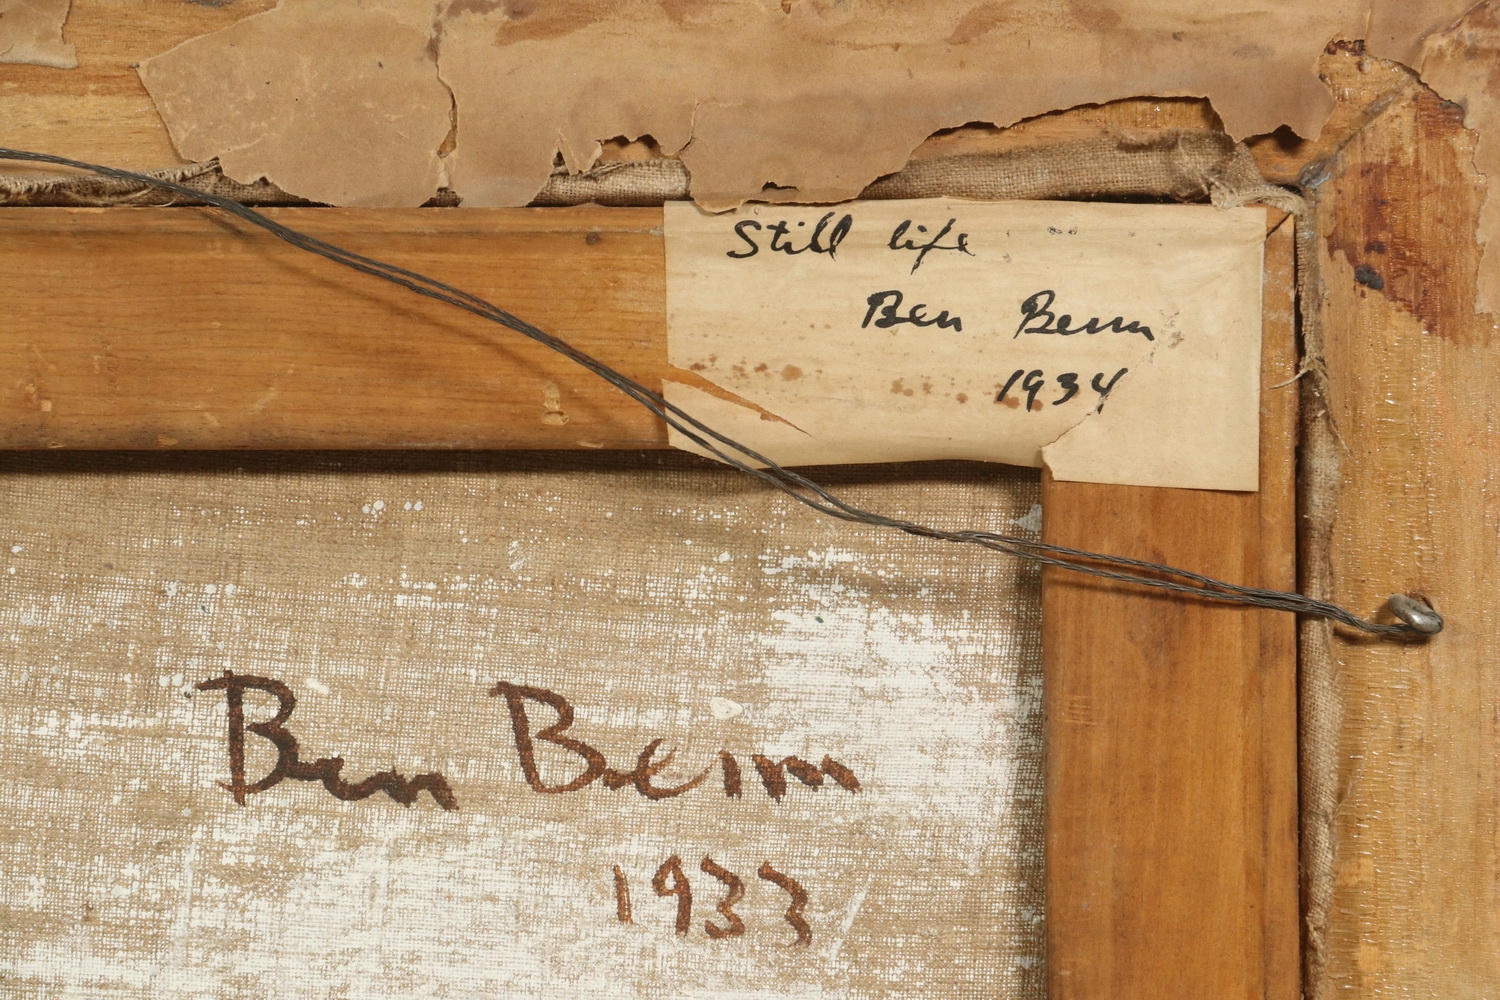 Still life
Ben Benn
1934
Ben Benn
1933